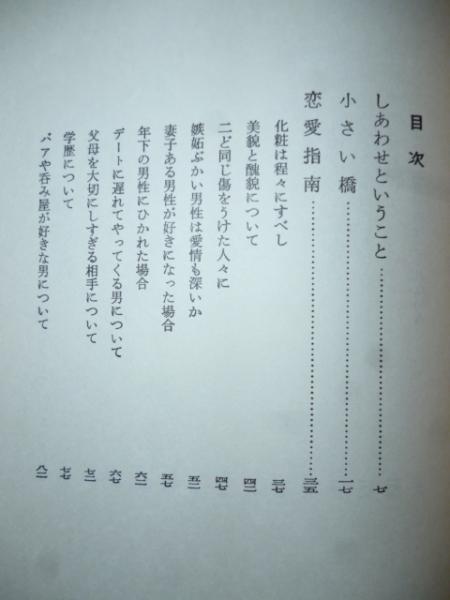 目次
しあわせということ……………………………七
小さい橋……………………………一七
恋愛指南……………………………三五
化粧は程々にすべし　三七
美貌と醜貌について　四二
二ど同じ傷をうけた人々に　四七
嫉妬ぶかい男性は愛情も深いか　五二
妻子ある男性が好きになった場合　五七
年下の男性にひかれた場合　六二
デートに遅れてやってくる男について　六七
父母を大切にしすぎる相手について　七二
学歴について　七七
バアや呑み屋が好きな男について　八二